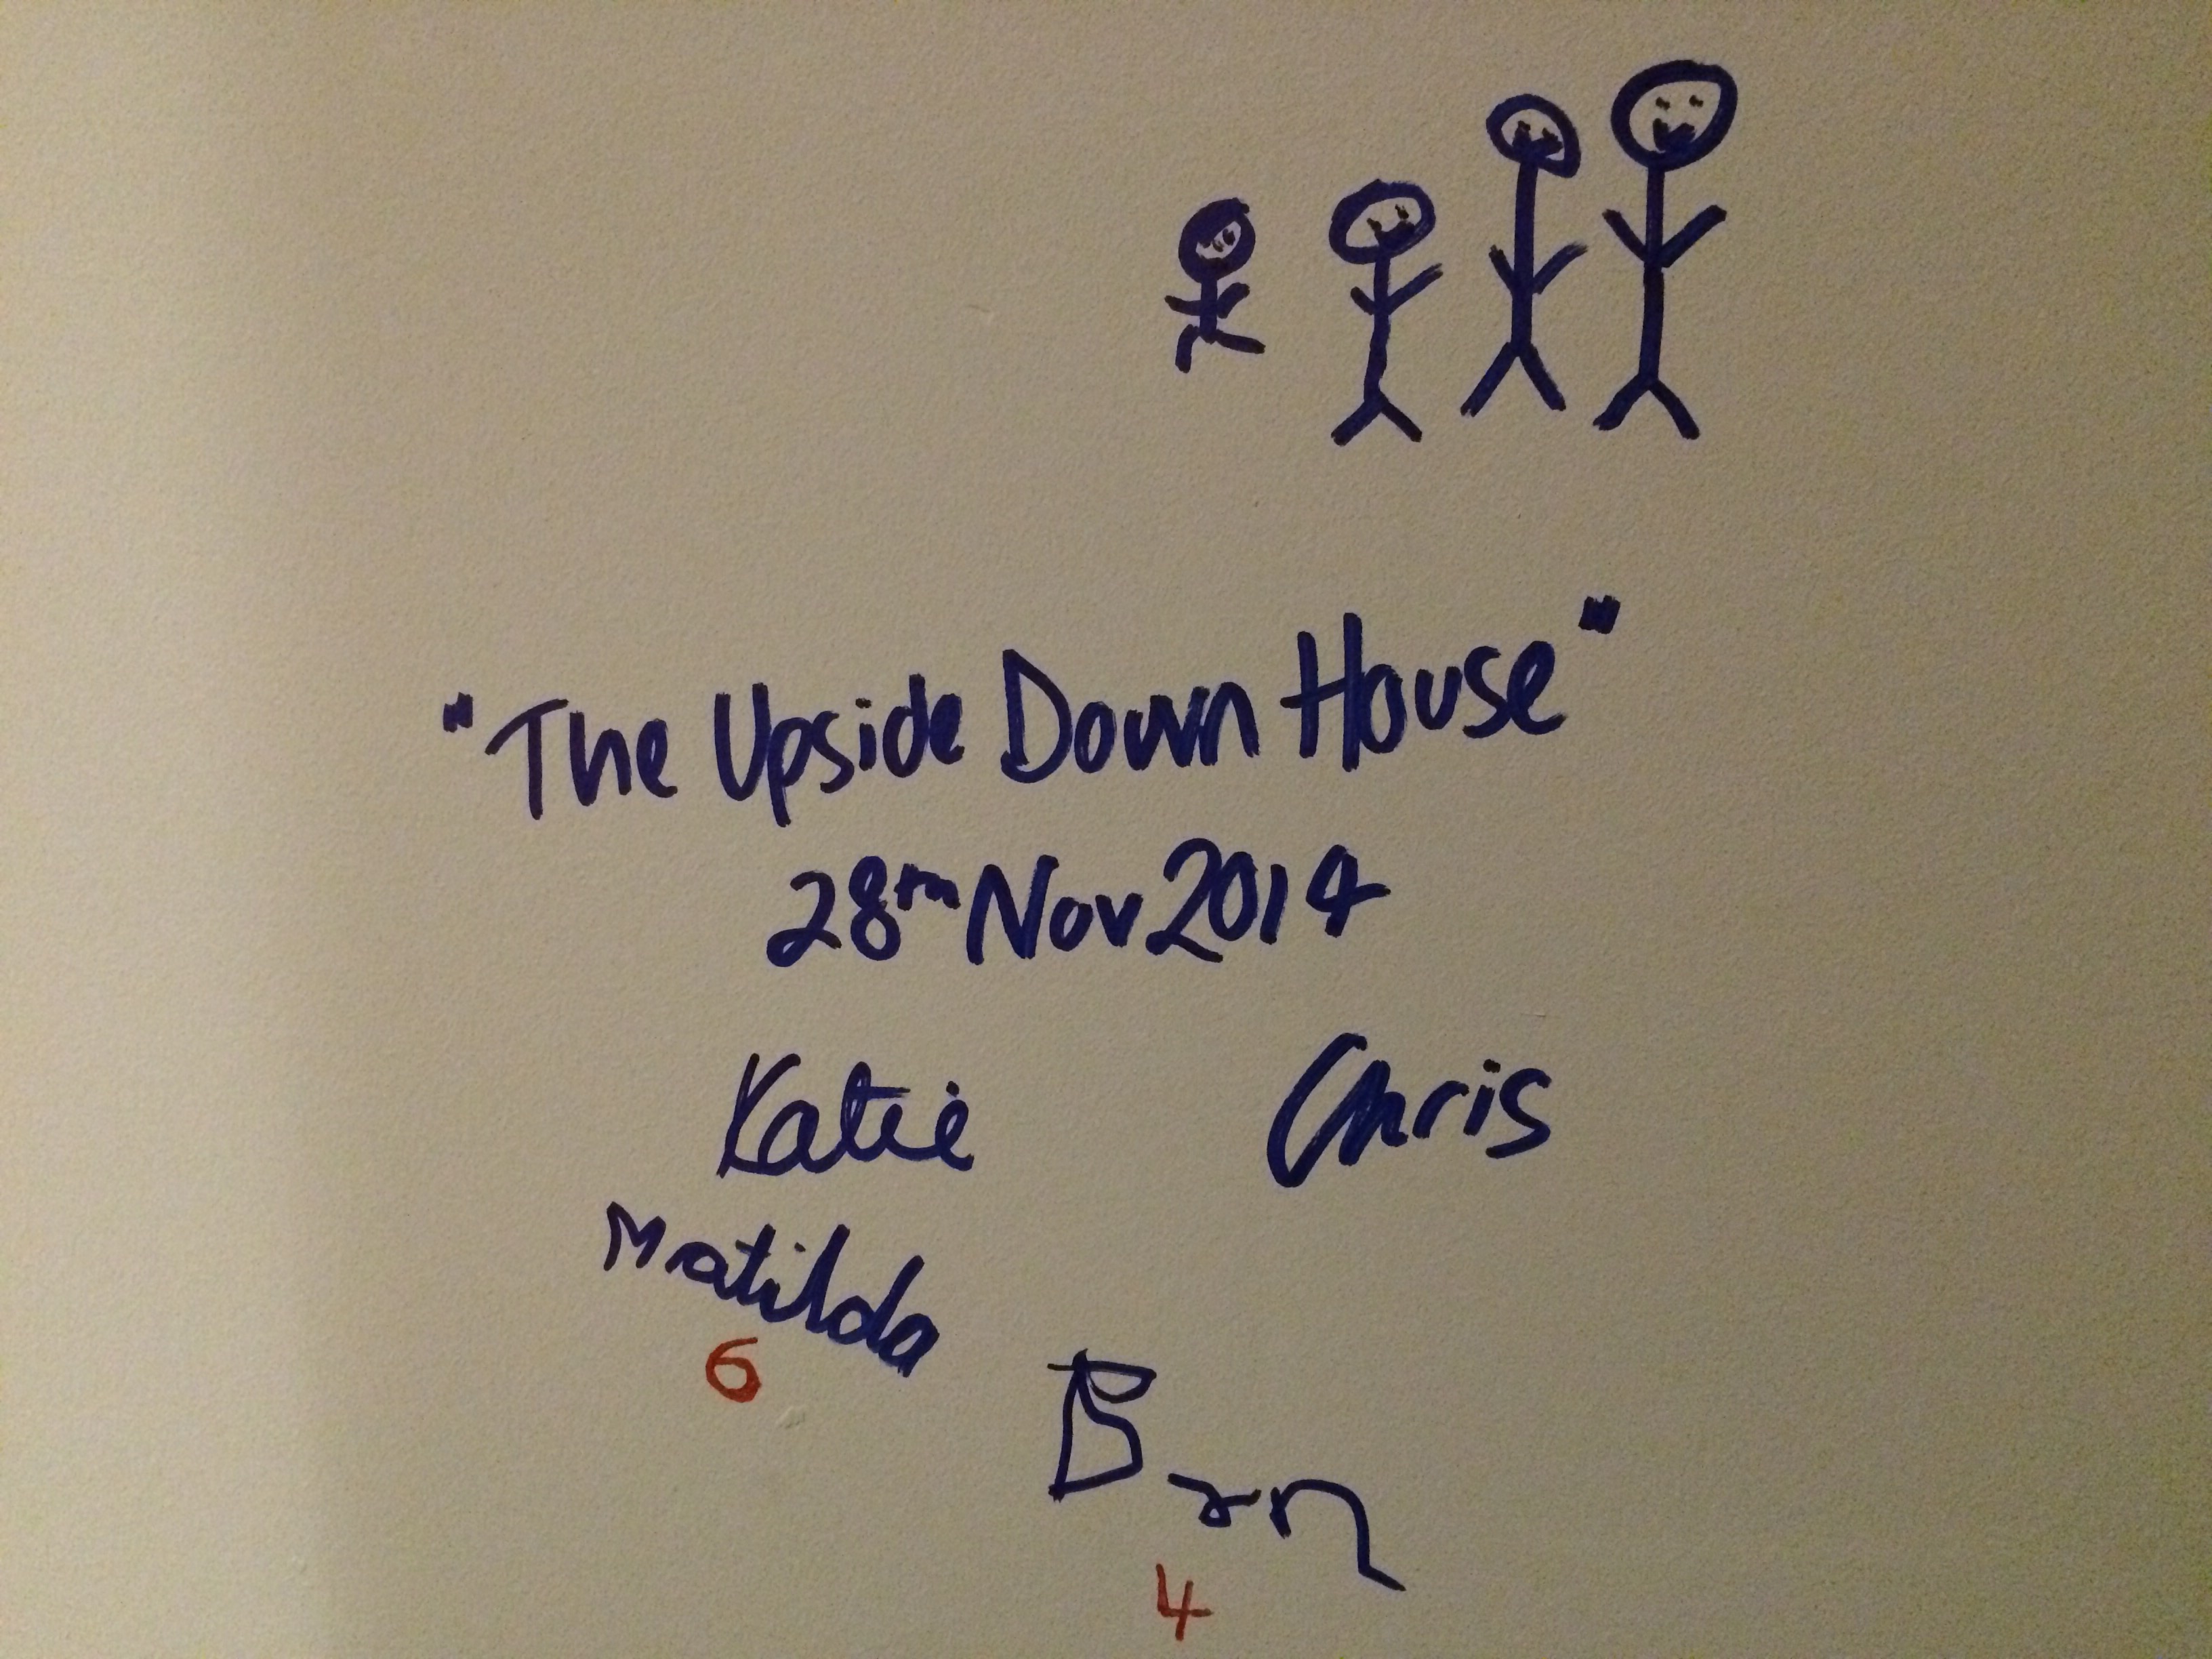 "The Upside Down House"
28th Nov 2014
Katie Chris
Matilda
6
Ben
4